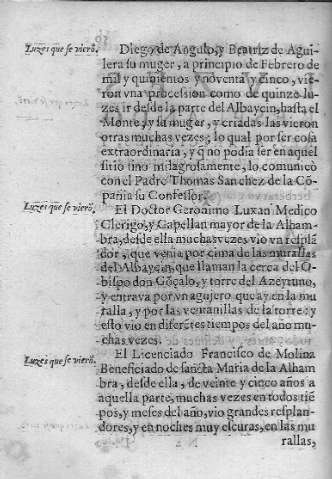 Luzes que se vierõ.
Diego de Angulo, y Beatriz de Agui-
lera su muger, a principio de Febrero de
mil y quinientos y noventa y cinco, vie-
ron vna procession como de quinze lu-
zes ir desde la parte del Albaycin, hasta el
Monte; y su muger, y criadas las vieron
otras muchas vezes; lo qual por ser cosa
extraordinaria, y q̃ no podia ser en aquel
sitio sino milagrosamente, lo comunicò
con el Padre Thomas Sanchez de la Cõ-
pañia su Confessor.
Luzes que se vierõ.
El Doctor Geronimo Luxan Medico
Clerigo, y Capellan mayor de la Alham-
bra, desde ella muchas vezes vio vn resplã-
dor, que venia por cima de las murallas
del Albaycin, que llaman la cerca del O-
bispo don Gõçalo, y torre del Azeytuno,
y entrava por vn agujero que ay en la mu-
ralla, y por las ventanillas de la torre: y
esto vio en diferētes tiempos del año mu-
chas vezes.
Luzes que se vierõ.
El Licenciado Francisco de Molina
Beneficiado de sancta Maria de la Alham
bra, desde ella, de veinte y cinco años a
aquella parte, muchas vezes en todos tiē-
pos, y meses del año, vio grandes resplan-
dores, y en noches muy escuras, en las mu
rallas,